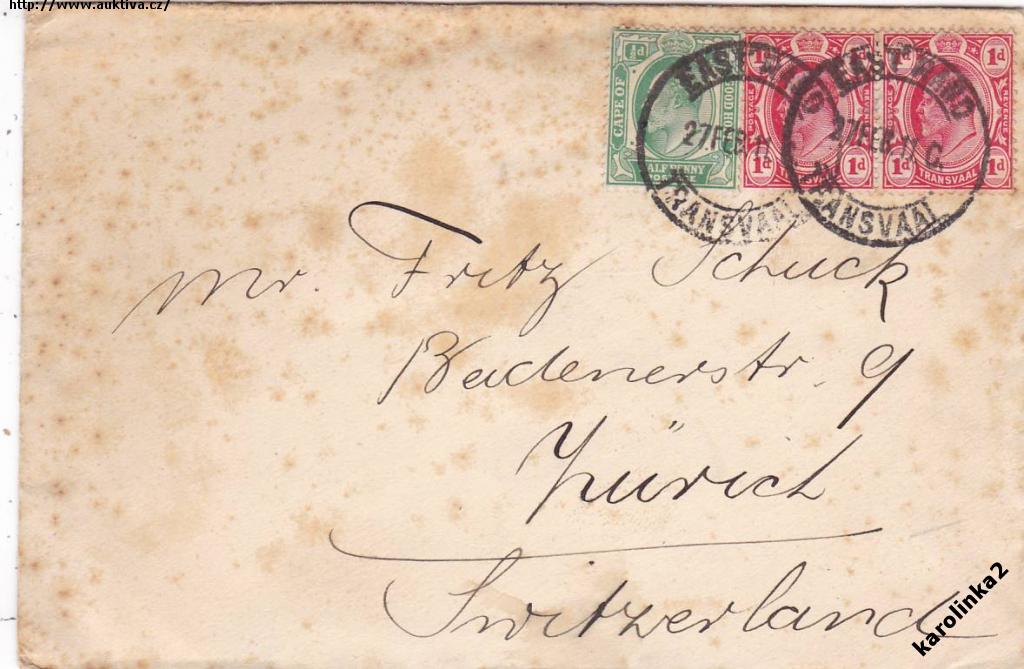 http://www.auktiva.cz/
½d
CAPE OF GOOD HOPE
HALF PENNY
POSTAGE
1d 1d
POSTAGE REVENUE
1d 1d
TRANSVAAL
1d 1d
POSTAGE REVENUE
1d 1d
TRANSVAAL
EAST RAND
27 FEB 11
TRANSVAAL
EAST RAND
27 FEB 11
TRANSVAAL
Mr. Fritz Schuck
Badenerstr. 9
Zürich
Switzerland
karolinka2